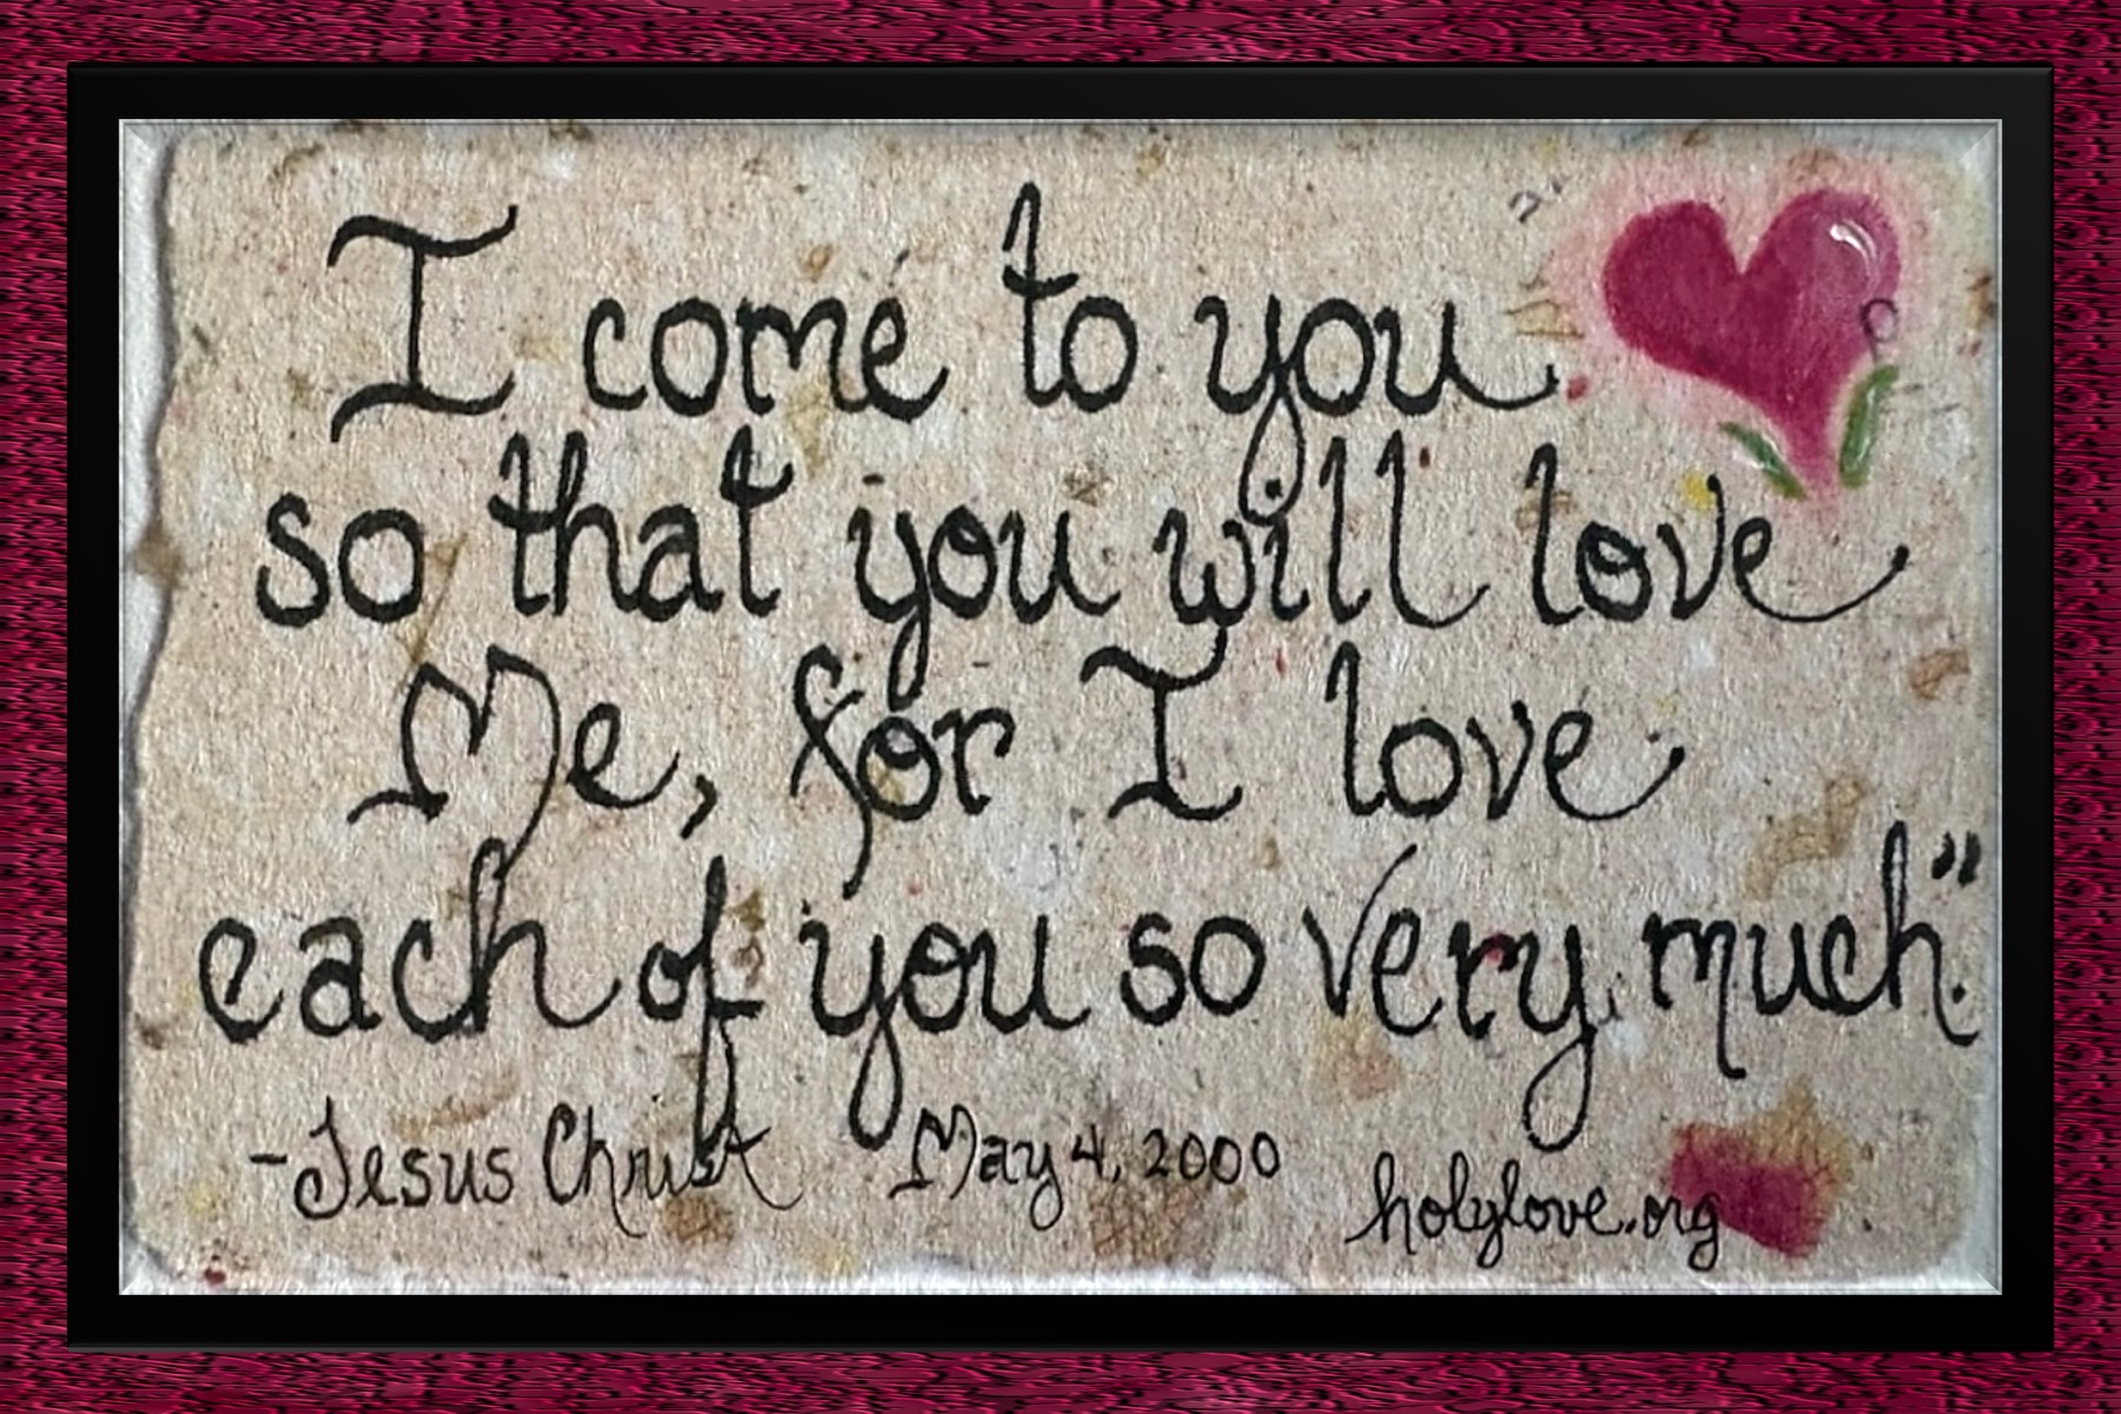 I come to you
so that you will love
Me, for I love
each of you so very much."
-Jesus Christ May 4, 2000 holylove.org